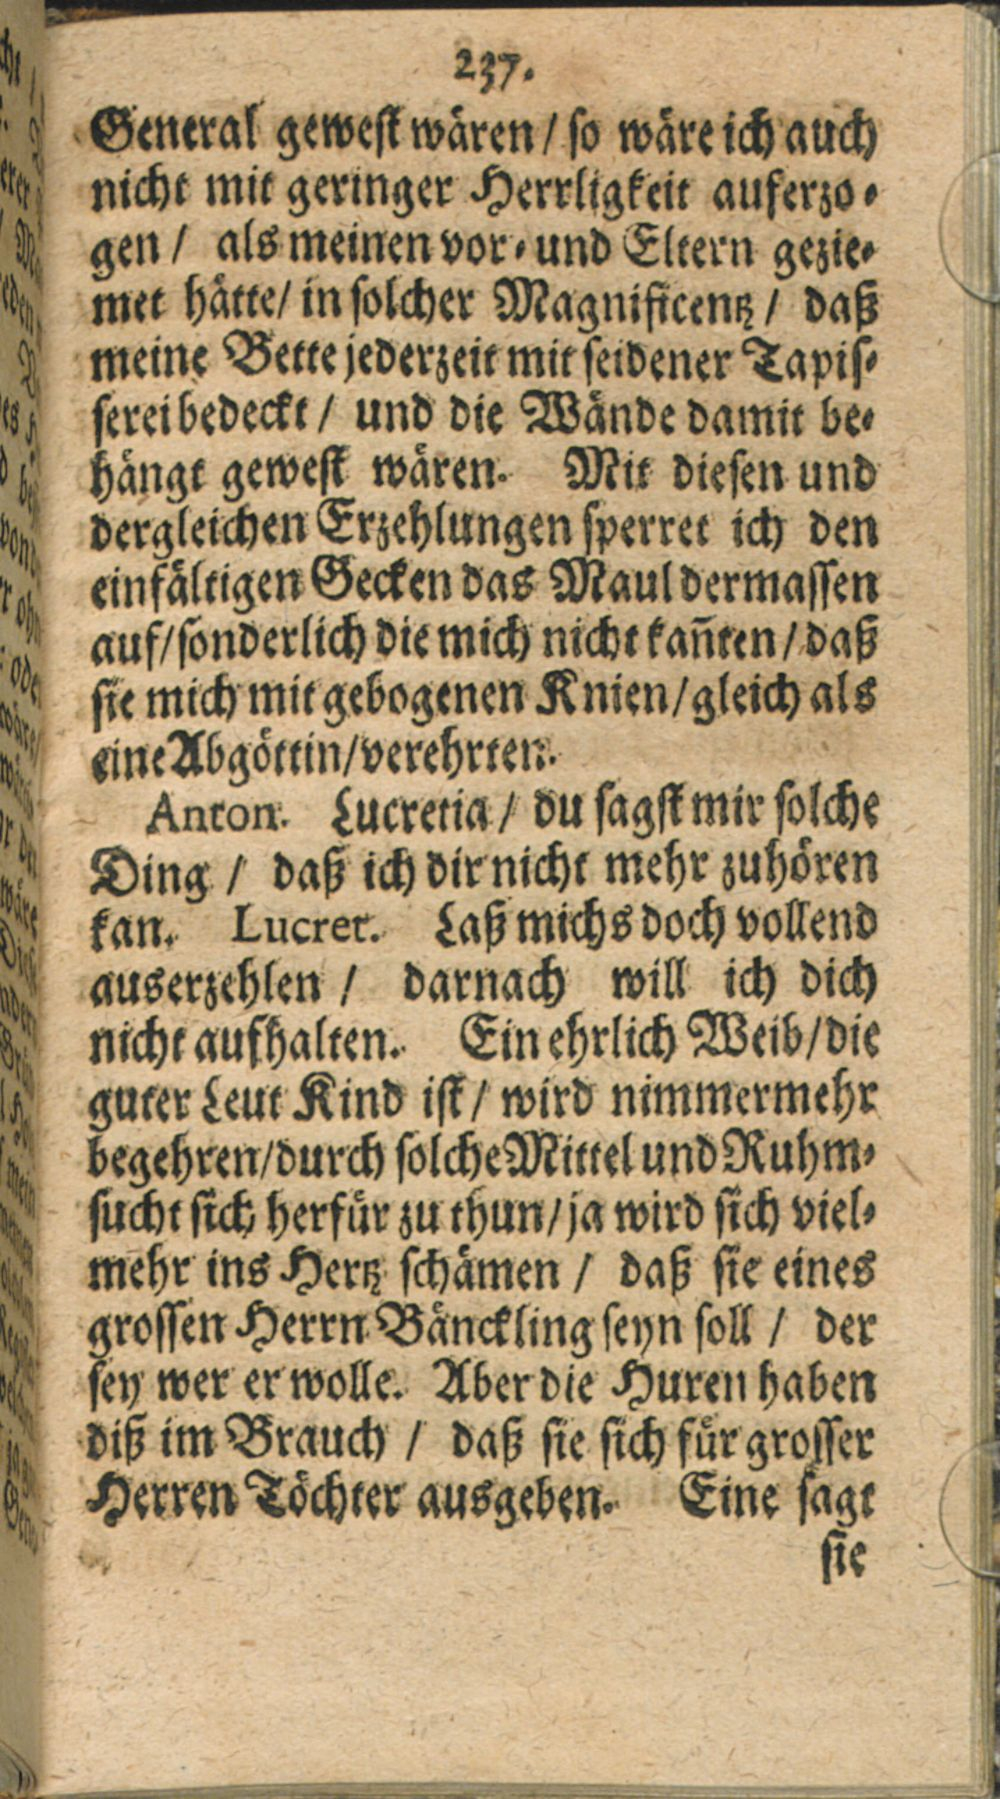 237.
General gewest wären / so wäre ich auch
nicht mit geringer Herrligkeit auferzo-
gen / als meinen vor- und Eltern gezie-
met hätte / in solcher Magnificentz / daß
meine Bette jederzeit mit seidener Tapis-
serei bedeckt / und die Wände damit be-
hängt gewest wären. Mit diesen und
dergleichen Erzehlungen sperret ich den
einfältigen Gecken das Maul dermassen
auf / sonderlich die mich nicht kañten / daß
sie mich mit gebogenen Knien / gleich als
eine Abgöttin / verehrten.
Anton. Lucretia / du sagst mir solche
Ding / daß ich dir nicht mehr zuhören
kan. Lucret. Laß michs doch vollend
auserzehlen / darnach will ich dich
nicht aufhalten. Ein ehrlich Weib / die
guter Leut Kind ist / wird nimmermehr
begehren / durch solche Mittel und Ruhm-
sucht sich herfür zu thun / ja wird sich viel-
mehr ins Hertz schämen / daß sie eines
grossen Herrn Bänckling seyn soll / der
sey wer er wolle. Aber die Huren haben
diß im Brauch / daß sie sich für grosser
Herren Töchter ausgeben. Eine sagt
sie